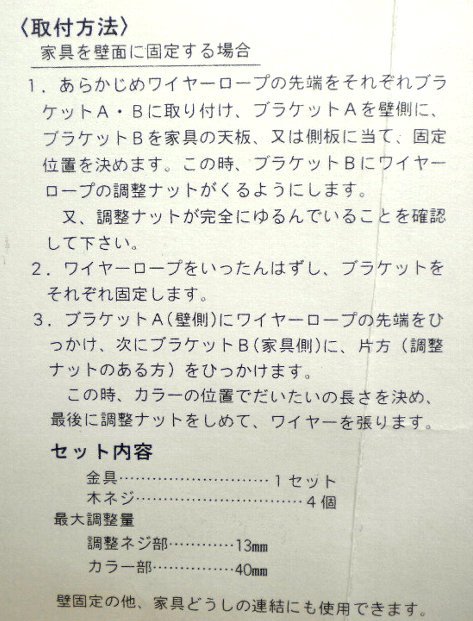 〈取付方法〉
家具を壁面に固定する場合
1．あらかじめワイヤーロープの先端をそれぞれブラ
ケットA・Bに取り付け、ブラケットAを壁側に、
ブラケットBを家具の天板、又は側板に当て、固定
位置を決めます。この時、ブラケットBにワイヤー
ロープの調整ナットがくるようにします。
又、調整ナットが完全にゆるんでいることを確認
して下さい。
2．ワイヤーロープをいったんはずし、ブラケットを
それぞれ固定します。
3．ブラケットA(壁側)にワイヤーロープの先端をひ
っかけ、次にブラケットB(家具側)に、片方（調整
ナットのある方）をひっかけます。
この時、カラーの位置でだいたいの長さを決め、
最後に調整ナットをしめて、ワイヤーを張ります。
セット内容
金具…………………………1セット
木ネジ…………………………4個
最大調整量
調整ネジ部…………13㎜
カラー部……………40㎜
壁固定の他、家具どうしの連結にも使用できます。